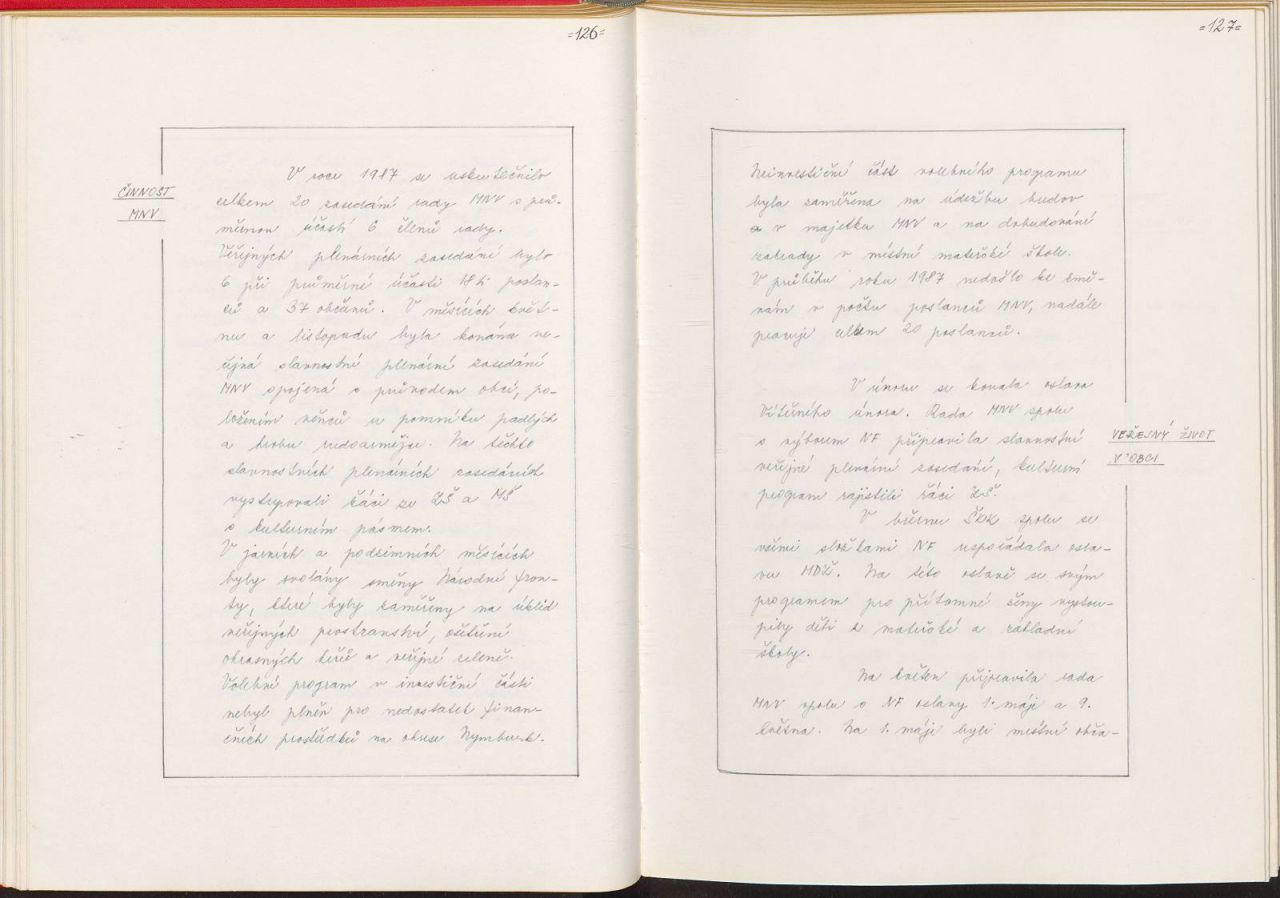 =126=
ČINNOST
MNV
V roce 1987 se uskutečnilo
celkem 20 zasedání rady MNV s prů-
měrnou účastí 6 členů rady.
Veřejných plenárních zasedání bylo
6 při průměrné účasti 18ti poslan-
ců a 37 občanů. V měsících květ-
nu a listopadu byla konána ve-
řejná slavnostní plenární zasedání
MNV spojená s průvodem obcí, po-
ložením věnců u pomníku padlých
a hrobu rudoarmějce. Na těchto
slavnostních plenárních zasedáních
vystupovali žáci ze ZŠ a MŠ
s kulturním pásmem.
V jarních a podzimních měsících
byly svolány směny Národní fron-
ty, které byly zaměřeny na úklid
veřejných prostranství, ošetření
okrasných keřů a veřejné zeleně.
Volební program v investiční části
nebyl plněn pro nedostatek finan-
čních prostředků na okrese Nymburk.
=127=
Neinvestiční část volebního programu
byla zaměřena na údržbu budov
a v majetku MNV a na dobudování
zahrady v místní mateřské škole.
V průběhu roku 1987 nedošlo ke změ-
nám v počtu poslanců MNV, nadále
pracuje celkem 20 poslanců.
V únoru se konala oslava
Vítězného února. Rada MNV spolu
s výborem NF připravila slavnostní
veřejné plenární zasedání, kulturní
program zajistili žáci ZŠ.
VEŘEJNÝ ŽIVOT
V OBCI
V březnu ŠKZ spolu se
všemi složkami NF uspořádala osla-
vu MDŽ. Na této oslavě se svým
programem pro přítomné ženy vystou-
pily děti z mateřské a základní
školy.
Na květen připravila rada
MNV spolu s NF oslavy 1. máje a 9.
května. Na 1. máje byli místní obča-